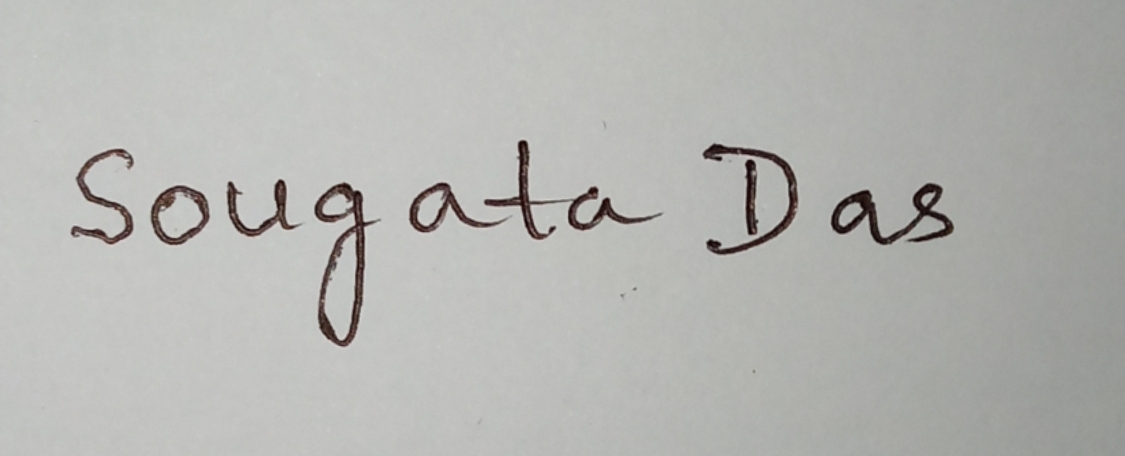 Sougata Das